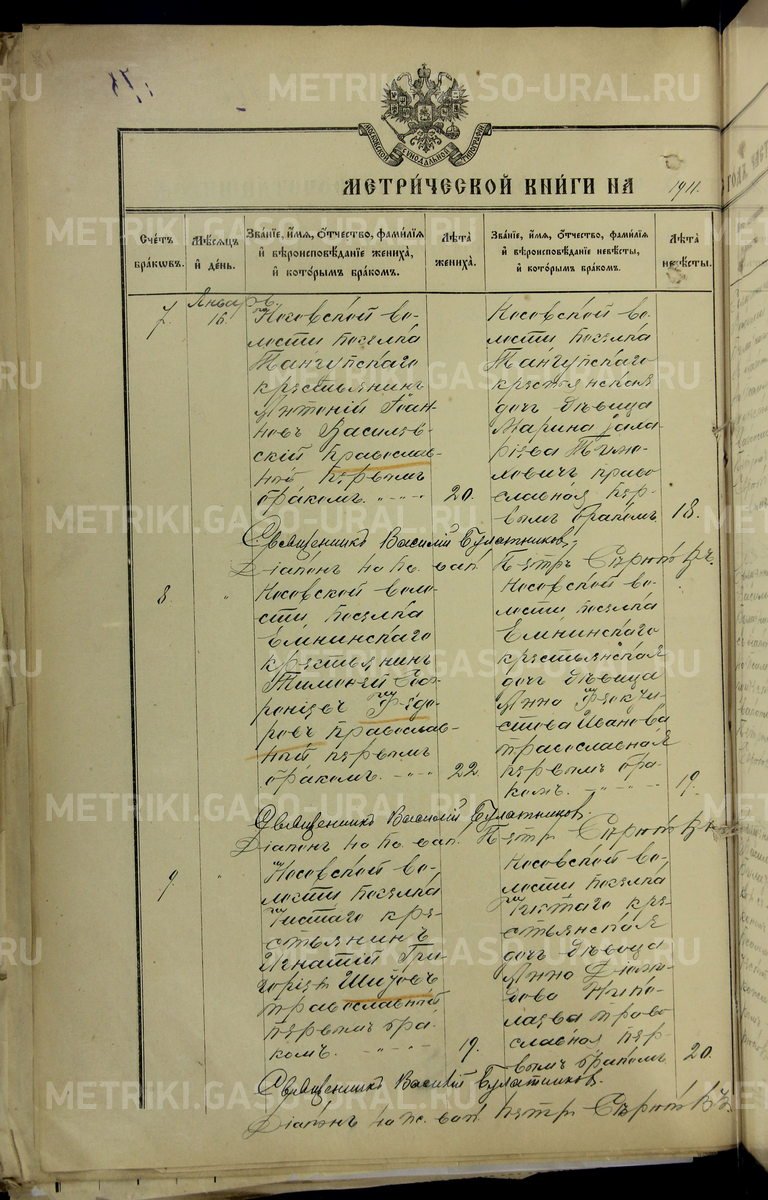 МОСКОВСКОЙ СѴНОДАЛЬНОЙ ТИПОГРАФІИ
МЕТРИ́ЧЕСКОЙ КНИ́ГИ НА 1911.
Сче́тъ бра́кѡвъ.
Мѣ́сѧцъ и҆ де́нь.
Зва́нїе, и҆́мѧ, ѻ҆́тчество, фамилїѧ
и҆ вѣроисповѣ́данїе жениха̀,
и҆ кото́рымъ бра́комъ.
Лѣ́та жениха̀.
Зва́нїе, и҆́мѧ, ѻ҆́тчество, фамилїѧ
и҆ вѣроисповѣ́данїе невѣ́сты,
и҆ кото́рымъ бра́комъ.
Лѣ́та невѣ́сты.
7.
Январь.
16.
Носовской во-
лости поселка
Тангупскаго
крестьянинъ
Антоній Іоан-
новъ Василев-
скій православ-
ный первымъ
бракомъ.
20.
Носовской во-
лости поселка
Тангупскаго
крестьянская
дочь дѣвица
Марина
Тимо-
ловичъ право
славная пер-
вымъ бракомъ
18.
Священникъ Василій Булатниковъ.
Діаконъ на пс. вак. Петръ
8.
"
Носовской воло-
сти поселка
Елнинскаго
крестьянинъ
Тимофей Соф-
роніевъ Ѳедо-
ровъ православ-
ный первымъ
бракомъ.
22
Носовской во-
лости поселка
Елнинскаго
крестьянская
дочь дѣвица
Анна Ѳеокти-
стова Иванова
православная
первымъ бра-
комъ.
19.
Священникъ Василій Булатниковъ.
Діаконъ на пс. вак. Петръ
9.
"
Носовской во-
лости поселка
Чистаго кре-
стьянинъ
Игнатій Гри-
горіевъ Шиловъ
православный
первымъ бра-
комъ.
19.
Носовской во-
лости поселка
Чистаго кре-
стьянская
дочь дѣвица
Анна
Нико-
лаева право
славная пер-
вымъ бракомъ
20.
Священникъ Василій Булатниковъ.
Діаконъ на пс. вак. Петръ
METRIKI.GASO-URAL.RU